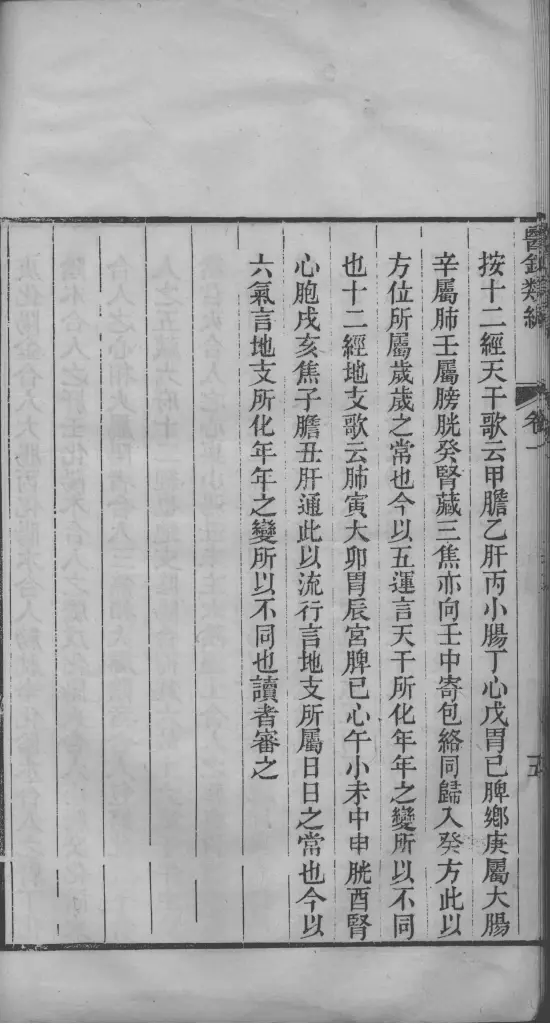 醫鈔類編
卷一
五
按十二經天干歌云甲膽乙肝丙小腸丁心戊胃己脾鄉庚屬大腸
辛屬肺壬屬膀胱癸腎藏三焦亦向壬中寄包絡同歸入癸方此以
方位所屬歲歲之常也今以五運言天干所化年年之變所以不同
也十二經地支歌云肺寅大卯胃辰宮脾巳心午小未中申胱酉腎
心胞戌亥焦子膽丑肝通此以流行言地支所屬日日之常也今以
六氣言地支所化年年之變所以不同也讀者審之